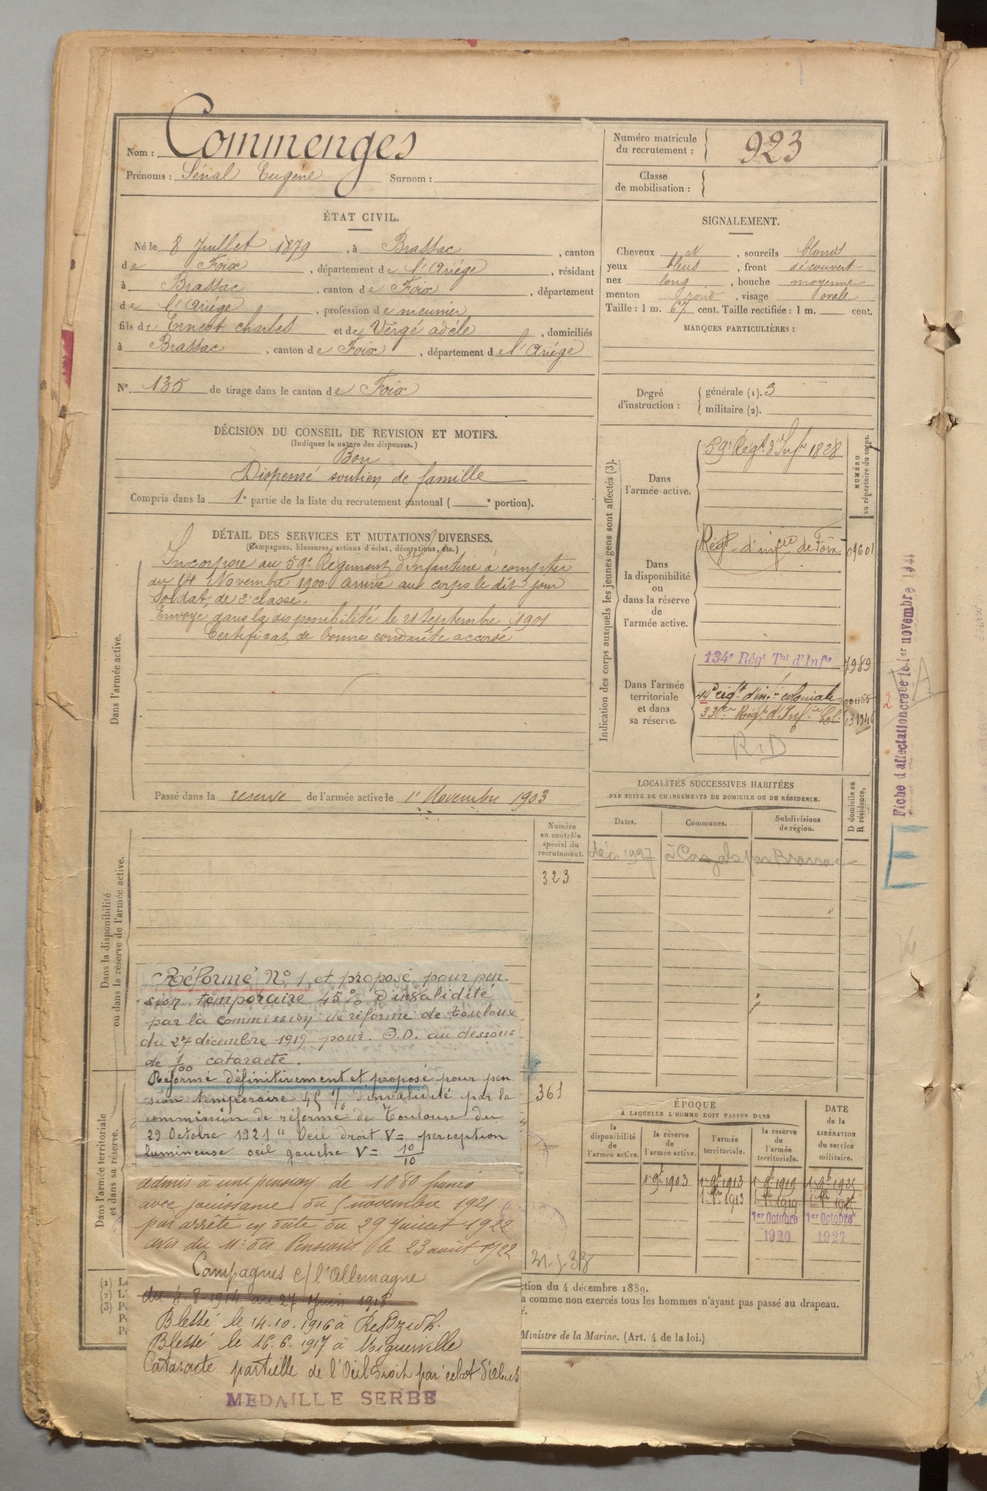 Nom : Commenges
Prénoms : Sérial Eugène Surnom :
Numéro matricule
du recrutement : 923
Classe
de mobilisation :
ÉTAT CIVIL.
Né le 8 Juillet 1879, à Brassac, canton
de Foix, département de l'Ariége, résidant
à Brassac, canton de Foix, département
de l'Ariége, profession de meunier
fils de Ernest Charles et de Vergé adèle, domiciliés
à Brassac, canton de Foix, département de l'Ariége
N° 135 de tirage dans le canton de Foix
SIGNALEMENT.
Cheveux , sourcils blonds
yeux bleus, front découvert
nez long, bouche moyenne
menton rond, visage ovale
Taille : 1 m. 67 cent. Taille rectifiée : 1 m. cent.
MARQUES PARTICULIÈRES :
Degré
d'instruction :
générale (1). 3
militaire (2).
DÉCISION DU CONSEIL DE REVISION ET MOTIFS.
(Indiquer la nature des dispenses.)
Bon
Dispensé soutien de famille
Compris dans la 1e partie de la liste du recrutement cantonal ( e portion).
DÉTAIL DES SERVICES ET MUTATIONS DIVERSES.
(Campagnes, blessures, actions d'éclat, décorations, etc.)
Dans l'armée active.
Incorporé au 59e Régiment d'infanterie à compter
du 14 Novembre 1900 Arrivé aux corps le dit jour
Soldat de 2e classe.
Envoyé dans la disponibilité le 21 Septembre 1901
Certificat de bonne conduite accordé
Passé dans la réserve de l'armée active le 1er Novembre 1903
Indication des corps auxquels les jeunes gens sont affectés (3).
NUMÉRO
au répertoire du corps.
Dans
l'armée active.
59e Régt d'Infie 1828
Dans
la disponibilité
ou
dans la réserve
de
l'armée active.
Régt d'infie de Foix 09601
Dans l'armée
territoriale
et dans
sa réserve.
134e Régt Tal d'Infie 7989
44e reigt d'inf. coloniale
33e Régt d'Infie Col.
R.D
Fiche d'affectation créée le 1er novembre
LOCALITÉS SUCCESSIVES HABITÉES
PAR SUITE DE CHANGEMENTS DE DOMICILE OU DE RÉSIDENCE.
D domicile ou
R résidence.
Dates. Communes. Subdivisions
de région.
déc 1927 à Cazals par Brassac
Dans la disponibilité
ou dans la réserve de l'armée active.
Numéro
au contrôle
spécial du
recrutement.
323
Réformé N° 1 et proposé pour pen-
sion temporaire 45% d'invalidité
par la commission de réforme de Toulouse
du 27 décembre 1919 pour O.D. au dessous
de 1/100 cataracte.
Dans l'armée territoriale
et dans sa réserve.
361
Réformé définitivement et proposé pour pen
sion temporaire 45 % d'invalidité par la
commission de réforme de Toulouse du
29 Octobre 1921 "Oeil droit V= perception
lumineuse oeil gauche V= 10/10
admis à une pension de 1080 francs
avec jouissance du 5 novembre 1921
par arrêté en date du 29 Juillet 1922
avis du Mre des Pensions le 23 août 1922
Campagnes c/ l'Allemagne
du 4-8-1914 au 27 Juin 1918
Blessé le 14-10-1916 à
Blessé le 16.6.1917 à
Cataracte partielle de l'Oeil Droit par éclat d'obus
MEDAILLE SERBE
ÉPOQUE
À LAQUELLE L'HOMME DOIT PASSER DANS
la
disponibilité
de
l'armée active.
la réserve
de
l'armée active.
l'armée
territoriale.
la réserve
de
l'armée
territoriale.
DATE
de la
LIBÉRATION
du service
militaire.
1er 9bre 1903 1er 9bre 1913 1er 9bre 1919
1er 8bre 1913 1er 8bre 1919
1er Octobre 1er Octobre
1920 1927
ction du 4 décembre 1889.
a comme non exercés tous les hommes n'ayant pas passé au drapeau.
Ministre de la Marine. (Art. 4 de la loi.)
(1)
(2)
(3)